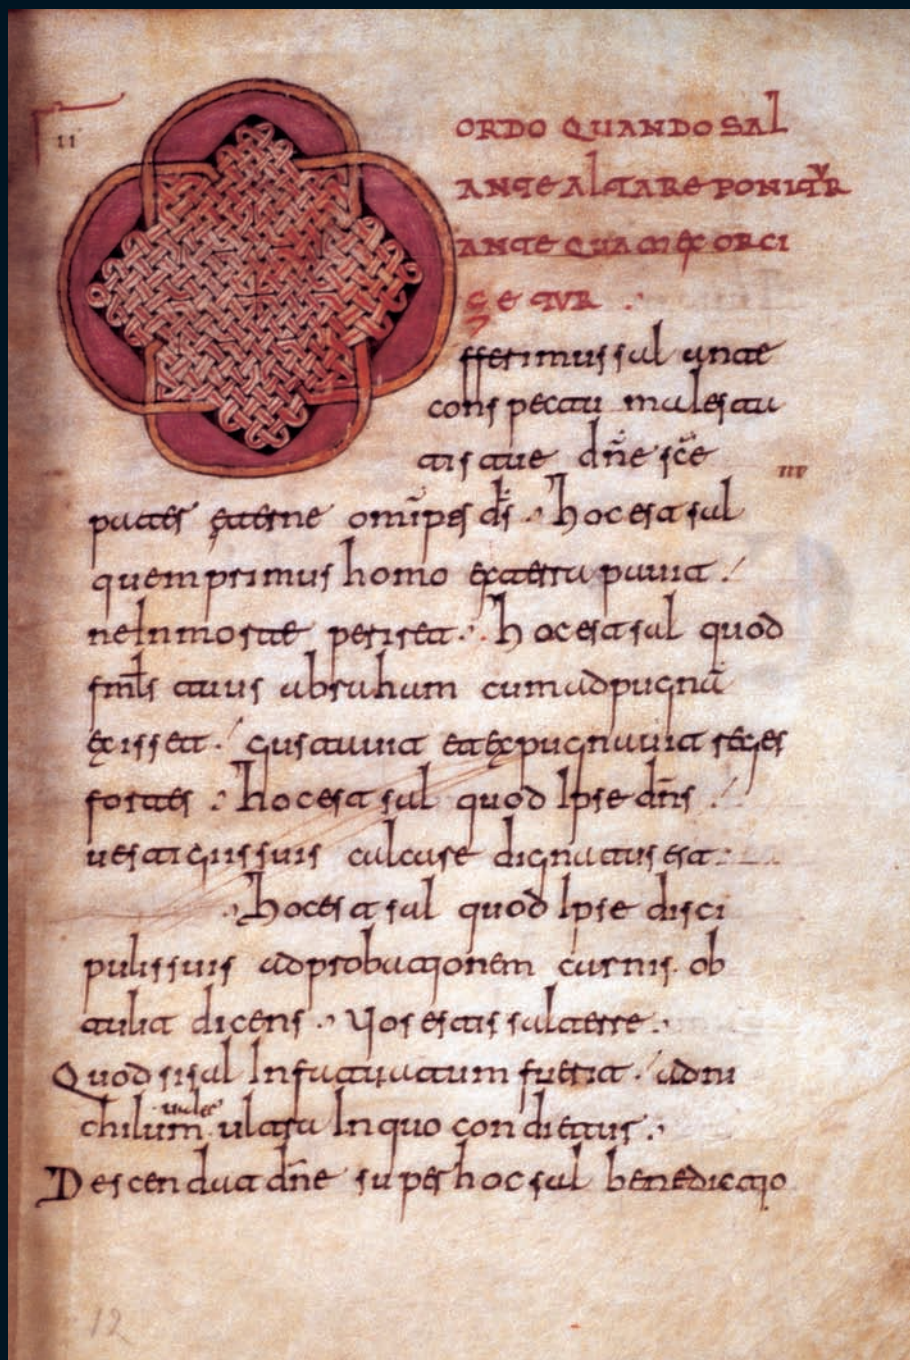 II
ORDO QUANDO SAL
ANTE ALTARE PONITUR
ANTE QUAM EXORCI
ZETUR
fferimus sal ante
conspectu maiestati
tis tue dñe sc̄e
pater eterne omīps d̄s. hoc est sal
quem primus homo ex terra pavit
ne In morte periret. hoc est sal quod
fml̄s tuus abraham cum ad pugnā
exisset. gustavit et expugnavit reges
fortes. hoc est sal quod Ipse dñs
vestigiis suis calcare dignatus est
hoc est sal quod Ipse disci
pulis suis ad probationem carnis ob
tulit dicens. Vos estis sal terre.
Quod si sal Infatuatum fuerit. ad ni
chilum valet ultra In quo condietur.
Descendat dñe super hoc sal benedictio
12